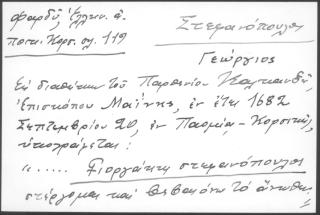 Φαρδύ, Ἑλλην. ἀ.
ποικ. Κορσ. σλ. 119
Στεφανόπουλος
Γεώργιος
Ἐν διαθήκῃ τοῦ Παρθενίου Καλκανδῆ
Ἐπισκόπου Μαΐνης, ἐν ἔτει 1682
Σεπτεμβρίου 20, ἐν Παομίᾳ-Κορσικῆς,
ὑπογράφεται:
"..... Γιοργάκης στεφανόπουλος
στέργομαι καὶ βεβαιόνω τὸ ἄνωθεν"